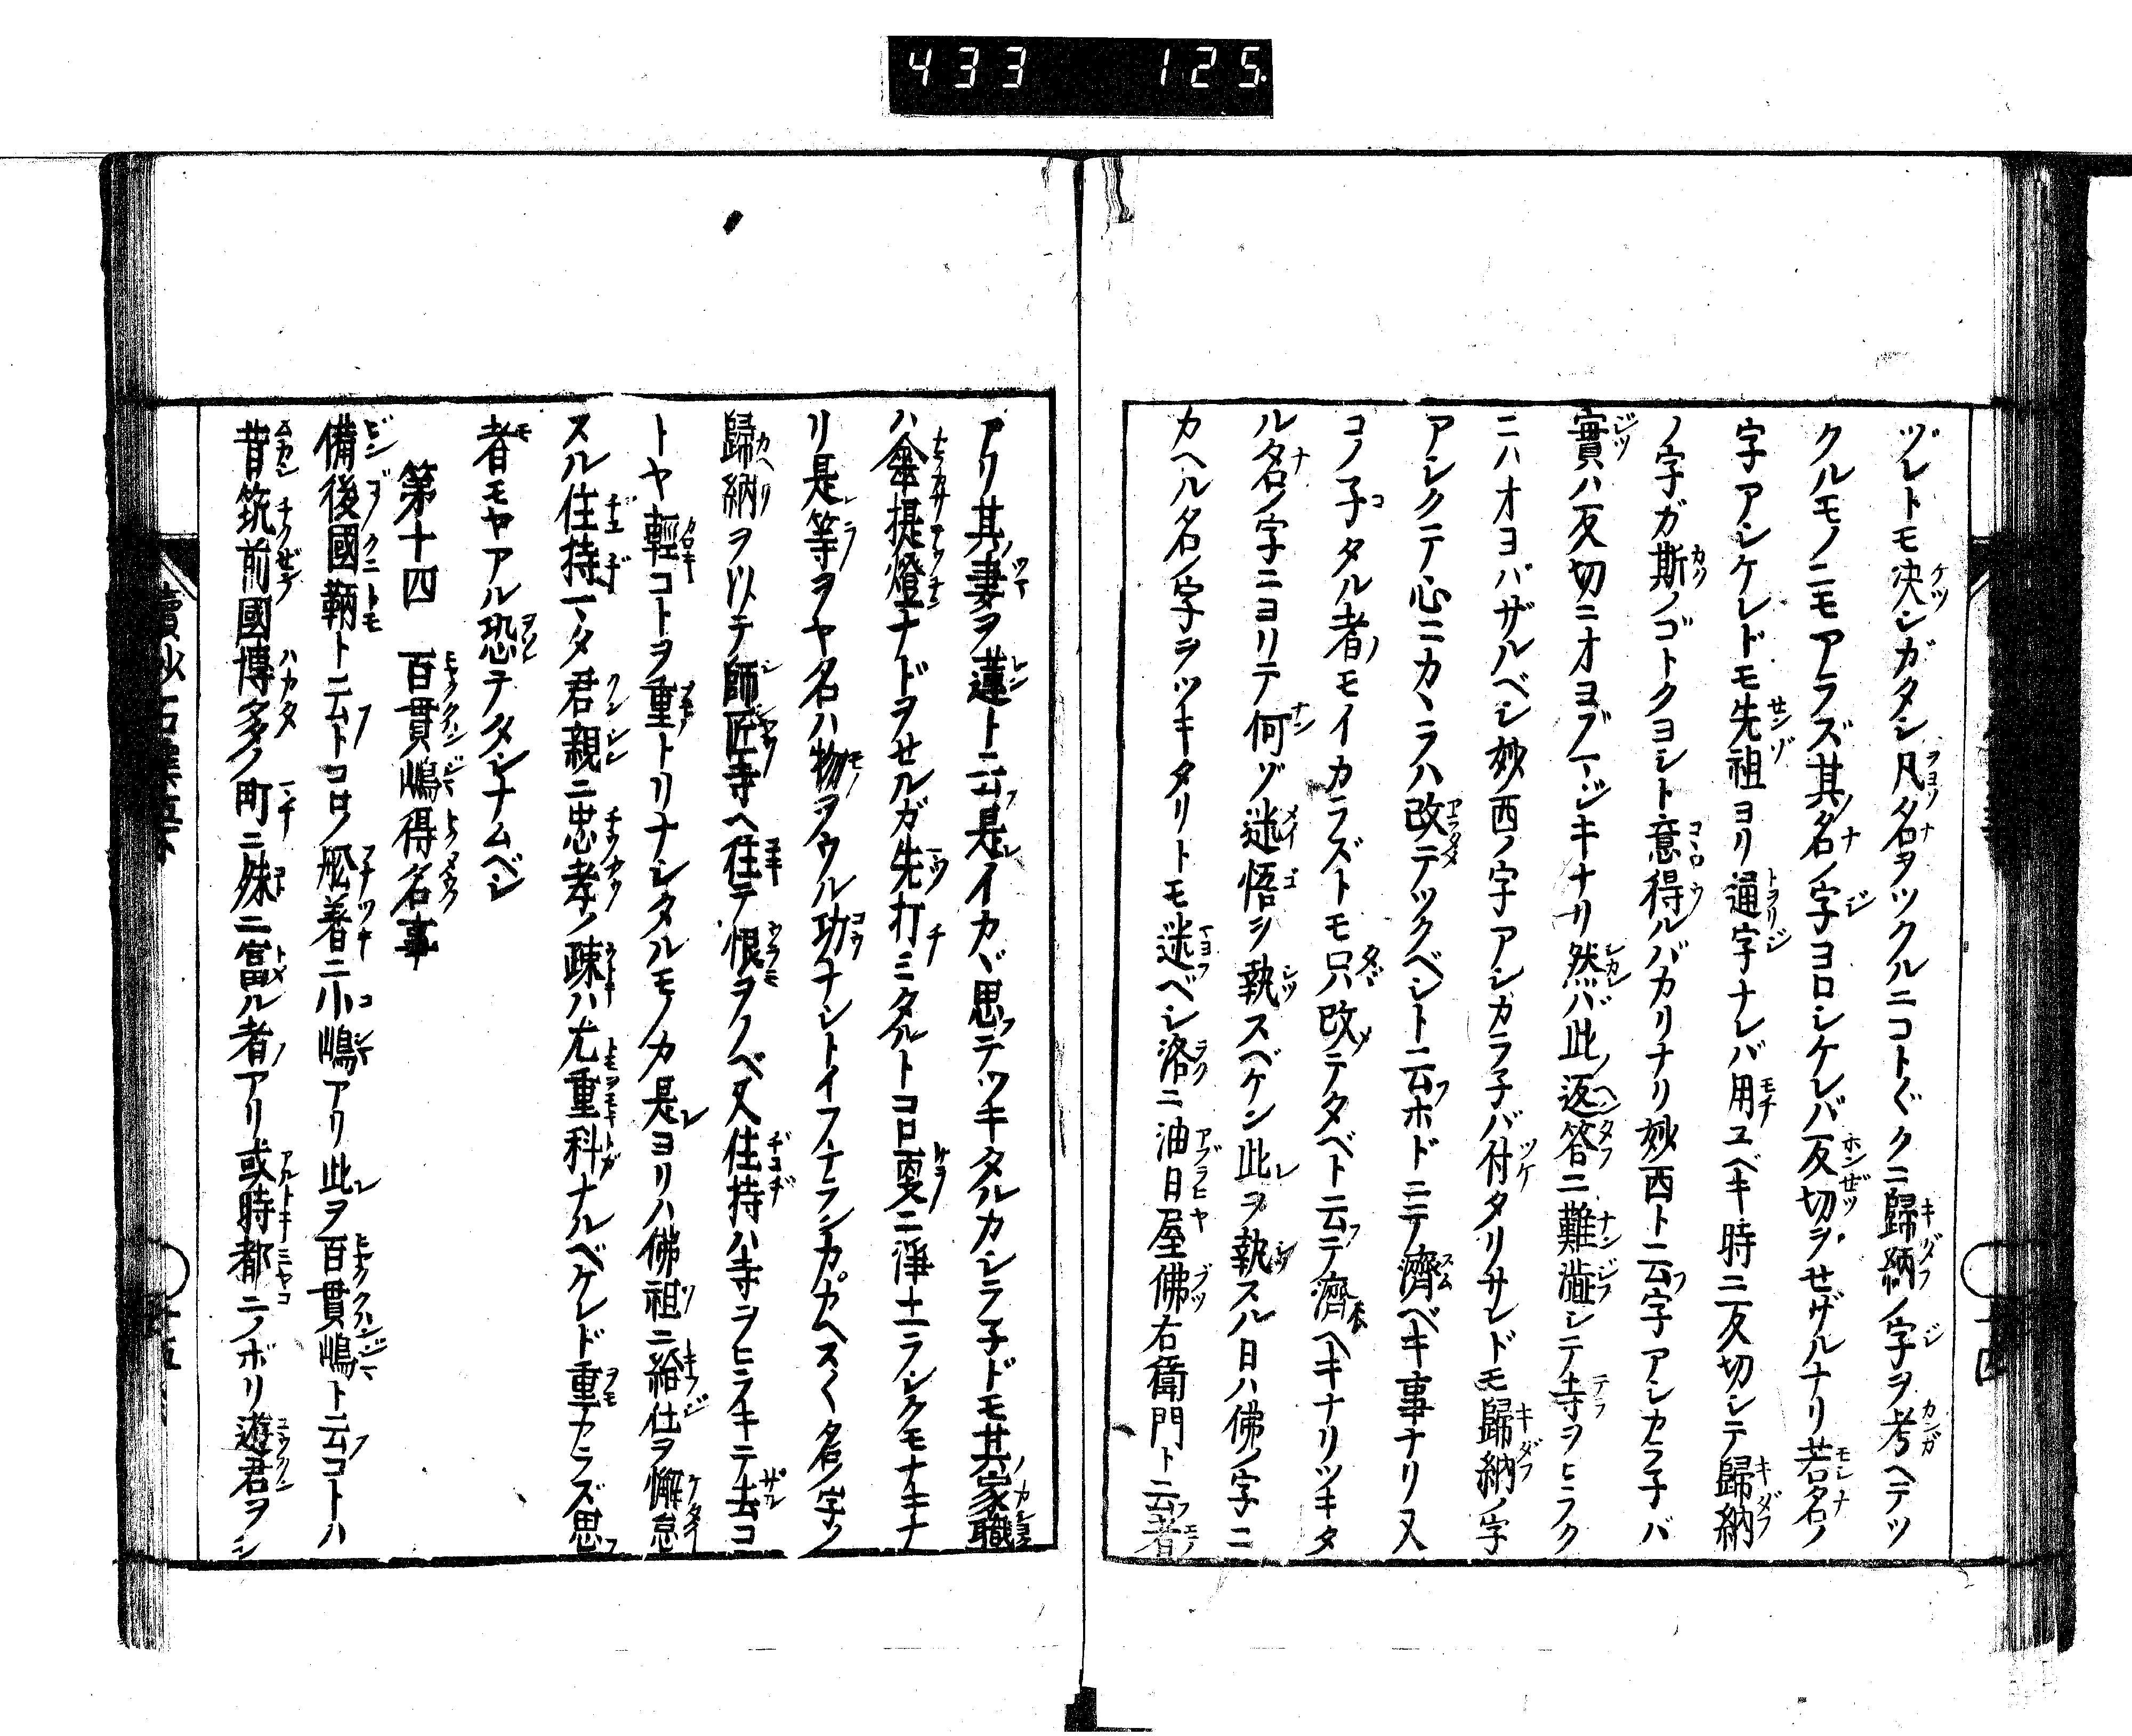 433 125.
ヅレトモ决シガタシ凡名ヲツクルニコト〲クニ歸納ノ字ヲ考ヘテツ
クルモノニモアラズ其名ノ字ヨロシケレバ反切ヲセザルナリ若名ノ
字アシケレドモ先祖ヨリ通字ナレバ用ユベキ時ニ反切シテ歸納
ノ字ガ斯ノゴトクヨシト意得ルバカリナリ妙西ト云字アシカラ子バ
實ハ反切ニオヨブマジキナリ然バ此返答ニ難澁シテ寺ヲヒラク
ニハオヨバザルベシ妙西ノ字アシカラ子バ付タリサレドモ歸納ノ字
アシクテ心ニカヽラハ改テツクベシト云ホドニテ濟ベキ事ナリ又
コノ子タル者モイカラズトモ只改テタベト云テ濟ヘキナリツキタ
ル名ノ字ニヨリテ何ゾ迷悟ヲ執スベケン此ヲ執スル日ハ佛ノ字ニ
カヘル名ノ字ヲツキタリトモ迷ベシ洛ニ油日屋佛右衛門ト云者
アリ其妻ヲ蓮ト云是イカヾ思テツキタルカシラ子ドモ其家職
ハ傘提燈ナドヲせルガ先打ミタルトコロ更ニ淨土ラシクモナキナ
リ是等ヲヤ名ハ物ヲウル功ナシトイフナランカカヘス〱名ノ字ノ
歸納ヲ以テ師匠寺ヘ往テ恨ヲノベ又住持ハ寺ヲヒラキテ去コ
トヤ輕コトヲ重トリナシタルモノカ是ヨリハ佛祖ニ給仕ヲ懈怠
スル住持マタ君親ニ忠孝ノ疎ハ尤重科ナルベケレド重カラズ思
者モヤアル恐テタシナムベシ
第十四 百貫嶋得名事
備後國鞆ト云トコロノ舩着ニ小嶋アリ此ヲ百貫嶋ト云コトハ
昔筑前國博多ノ町ニ殊ニ富ル者アリ或時都ニノボリ遊君ヲシ